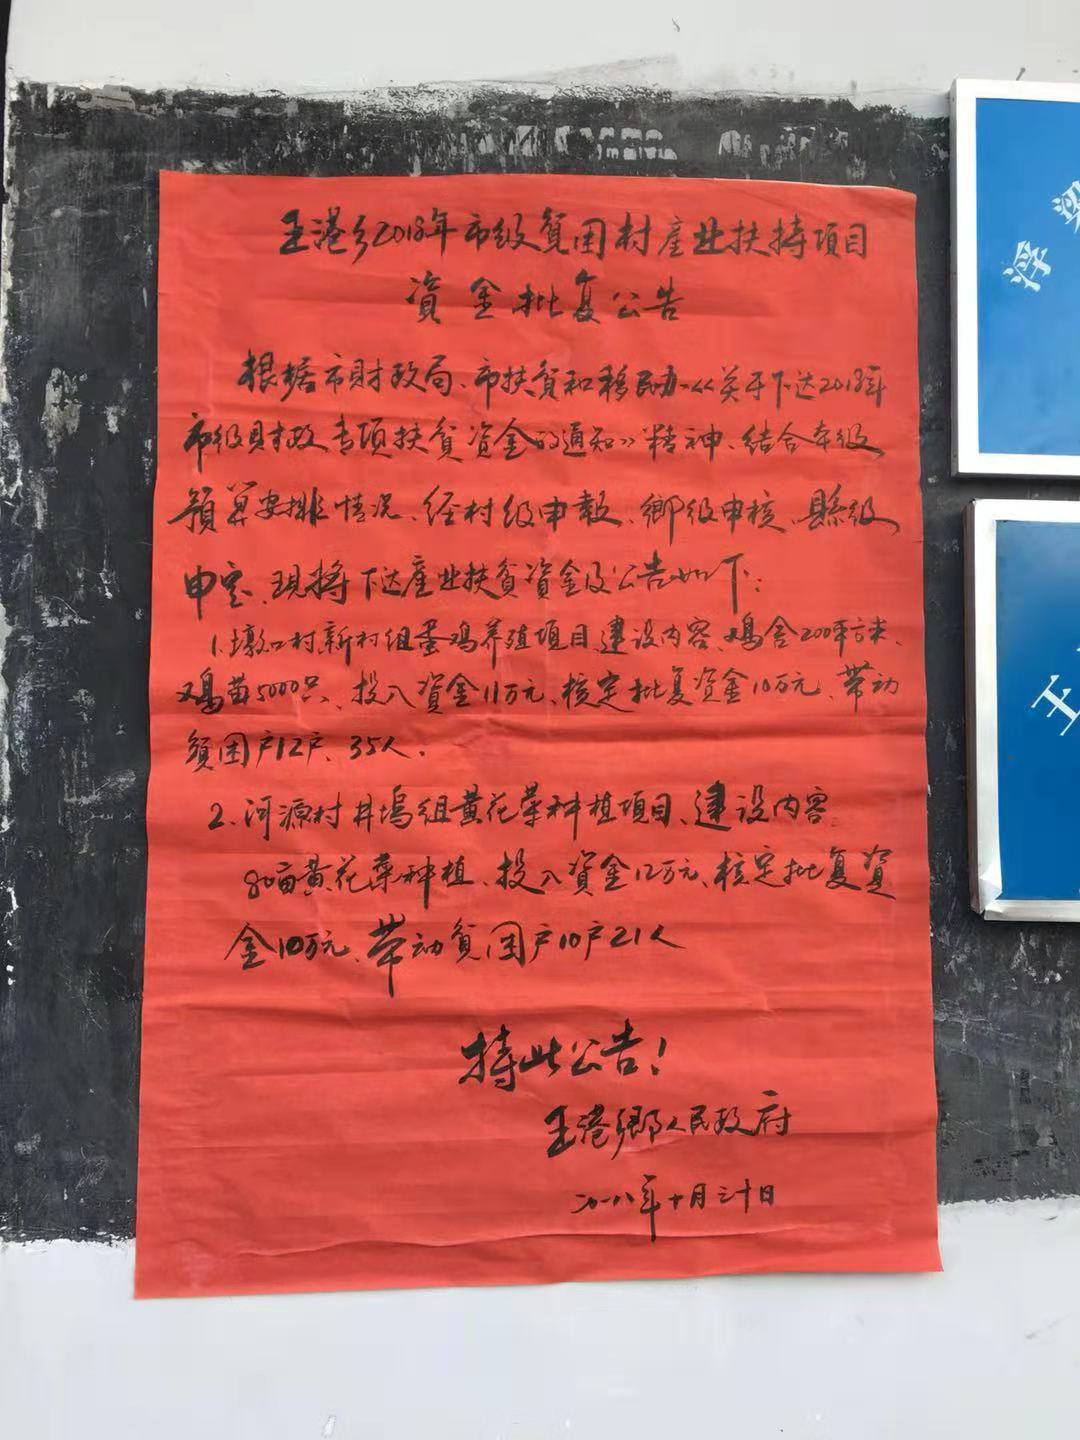 王港乡2018年市级貧困村産业扶持項目
資金批复公告
根据市财政局、市扶貧和移民办《关于下达2018年
市级财政专项扶貧資金的通知》精神、结合本级
預算安排情况、经村级申報、鄉级审核、縣级
审定、現将下达産业扶貧資金及公告如下:
1.墩口村新村组蛋鸡养殖項目、建设内容、鸡舍200平方米、
鸡苗5000只、投入資金11万元、核定批复資金10万元、带动
貧困户12户、35人.
2.河源村井塢组黄花菜种植項目、建设内容
80亩黄花菜种植、投入資金12万元、核定批复資
金10万元、带动貧困户10户21人
特此公告!
王港鄉人民政府
二0一八年十月三十日
王